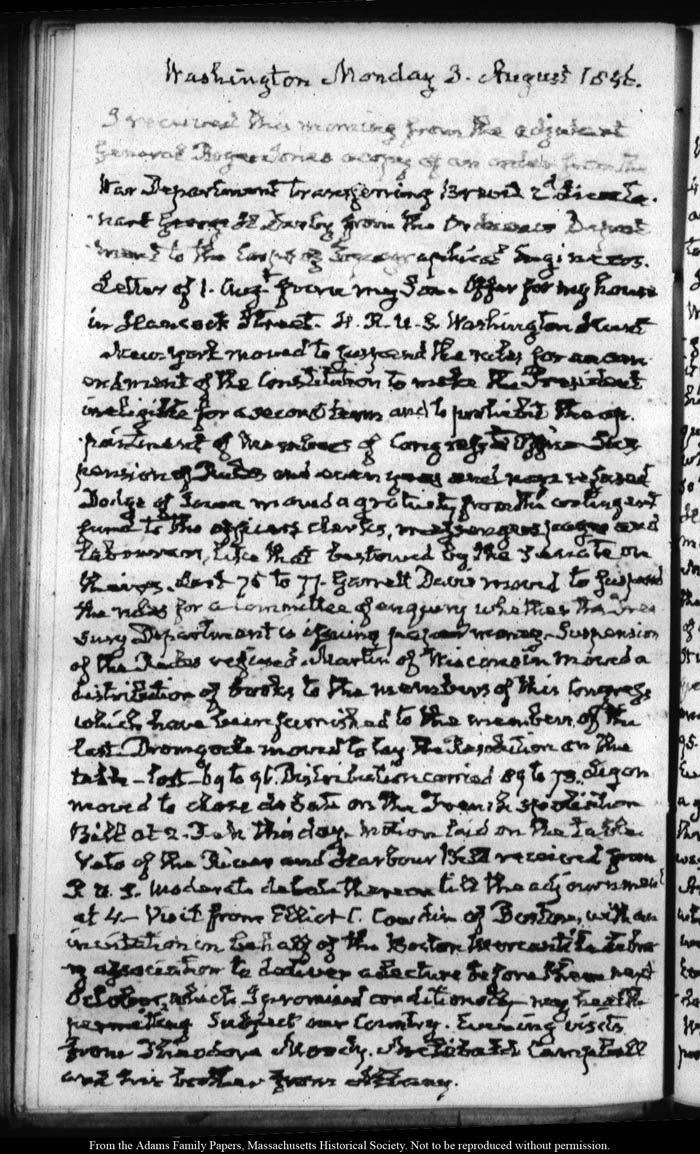 Washington Monday 3. August 1846.
I received this morning from the adjutant
General Roger Jones a copy of an order from the
War Department transferring Brevet 2d Lieute-
nant George H Derby from the Ordnance Depart
ment to the Corps of Topographical Engineers.
Letter of 1. Augt from my Son. Offer for my house
in Hancock Street. H. R. U. S. Washington Hunt
New-York moved to suspend the rules for an am
endment of the Constitution to make the President
ineligible for a second term and to prohibit the ap-
pointment of members of Congress to Office Sus
pension of Rules and nays refused
Dodge of Iowa moved a gratuity from the contingent
fund to the officers clerks, messengers pages and
labourers, like that bestowed by the Senate on
theirs. Lost 75 to 77. Garrett Davis moved to suspend
the rules for a committee of enquiry whether the Trea
sury Department is issuing paper money. Suspension
of the Rules refused. Martin of Wisconsin moved a
distribution of books to the members of this Congress
which have been furnished to the members of the
last. Dromgoole moved to lay the Resolution on the
table—lost—69 to 96. Distribution carried 89 to 78.
moved to close debate on the French spoliation
Bill at 2. Clk this day. Motion laid on the table.
Veto of the River and Harbour Bill received from
P. U. S. Moderate debate thereon till the adjournment
at 4— Visit from Elliot C. Cowdin of Boston, with an
invitation on behalf of the Boston Mercantile Libra
ry association to deliver a Lecture before them next
October, which I promised conditionally my health
permitting Subject our Country. Evening visits
from Theodore Moody. Archibald Campbell
and his brother from Albany.
From the Adams Family Papers, Massachusetts Historical Society. Not to be reproduced without permission.